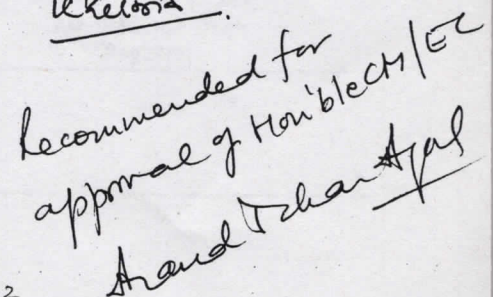 Recommended for
approval of Hon'ble CM/EC
Anand
2